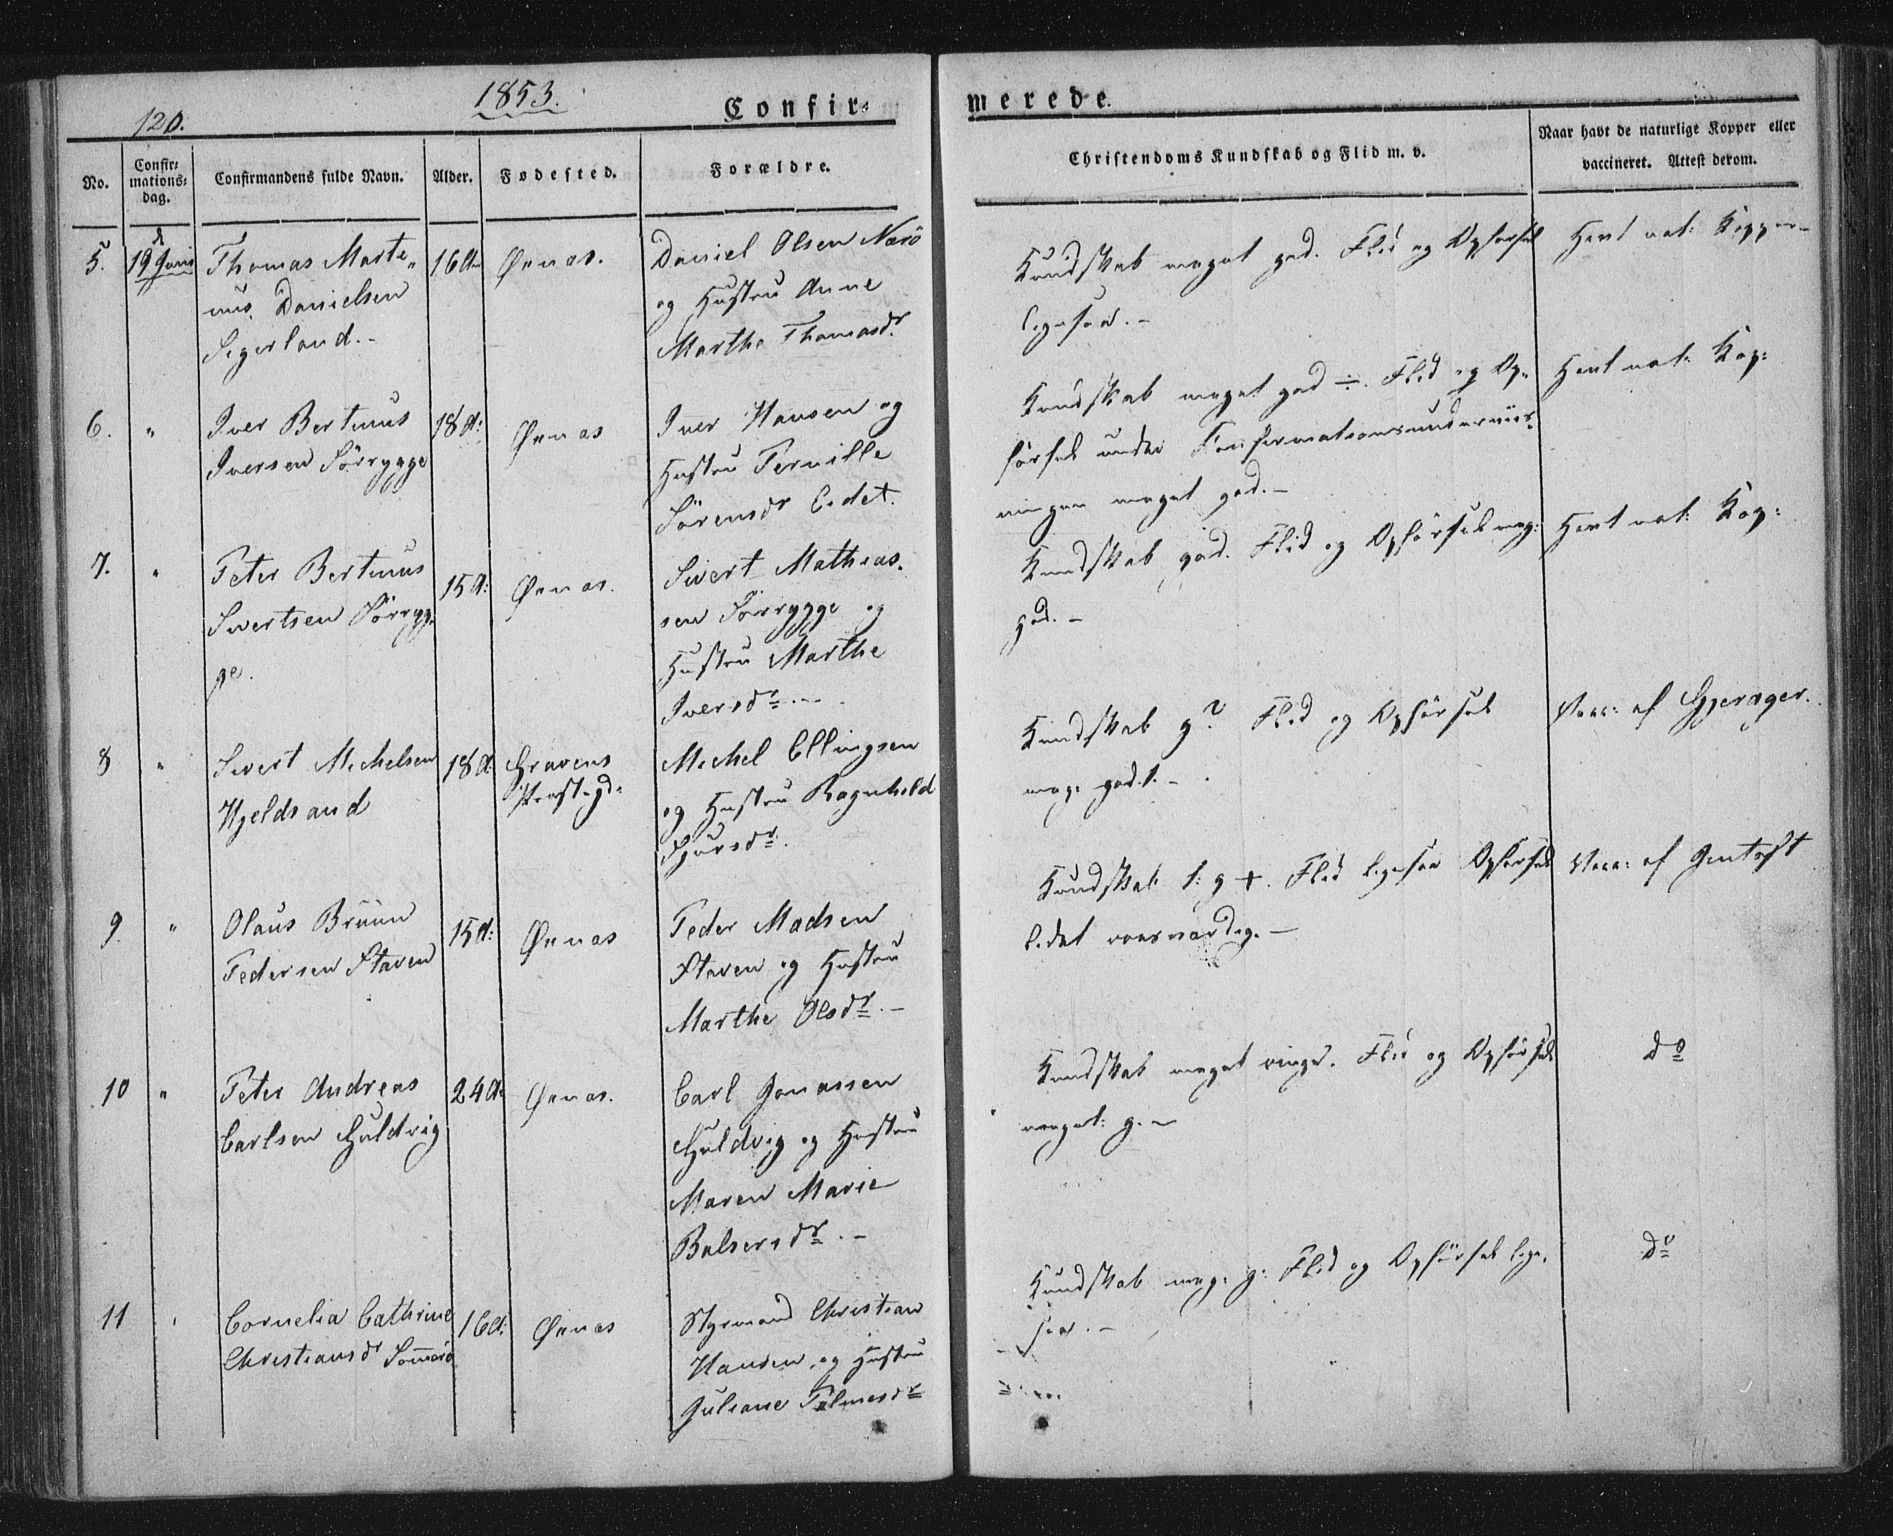 120.
1853.
Confir-
merede.
No.
Confir-
mations-
dag.
Confirmandens fulde Navn.
Alder.
Fødested.
Forældre.
Christendoms Kundskab og Flid m. v.
Naar havt de naturlige Kopper eller
vaccineret. Attest derom.
5.
d
19 Juni
Thomas Marte„
nus Danielsen
Segerland.-
16 A
Øxnæs.
Daniel Olsen Nærö
og Hustru Anne
Marthe Thomasdr
Kundskab meget god. Flid og Opförsel
ligesaa.-
Havt nat: Kopper-
6.
"
Iver Bertinus
Iversen Sörrygge
18 A:
Øxnæs
Iver Hansen og
Hustru Pernille
Sörensdr Eidet.
Kundskab meget god ÷. Flid og Op„
försel under Konfirmationsunderviis„
ningen meget god.-
Havt nat: Kop:
7.
"
Peter Bertinus
Sivertsen Sörryg„
ge.
15 A:
Øxnæs.
Sivert Mathias„
sen Sörrygge og
Hustru Marthe
Iversdr.-
Kundskab god. Flid og Opförsel meg:
god.-
Havt nat: Kop:
8
"
Sivert Michelsen
Hjeldsand
18 A
Gravens
Præstegd:
Michel Ellingsen
og Hustru Ragnhild
Sjursdr.
Kundskab g? Flid og Opförsel
meg: godt.-
Vacc: af Gjeræger.
9.
"
Olaus Bruun
Pedersen Staven
15 A:
Øxnæs
Peder Madsen
Staven og Hustru
Marthe Olsdr.-
Kundskab t: g +. Flid ligesaa Opförsel
Vacc: af Jentoft
10
"
Peter Andreas
Carlsen Huldvig
24 A
Øxnæs.
Carl Jonassen
Huldvig og Hustru
Maren Marie
Balsersdr.-
Kundskab meget ringe. Flid og Opförsel
meget: g.-
do
11
"
Cornelia Cathrine
Christiansdr Sommerö
16 A:
Øxnæs
Styrmand Christian
Hansen og Hustru
Juliane
Kundskab meg: g: Flid og Opförsel lige„
saa.-
do